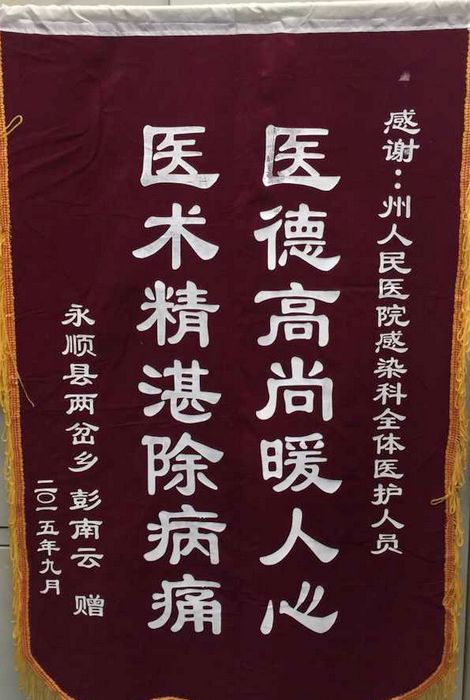 感谢：州人民医院感染科全体医护人员
医德高尚暖人心
医术精湛除病痛
永顺县两岔乡 彭南云 赠
二〇一五年九月